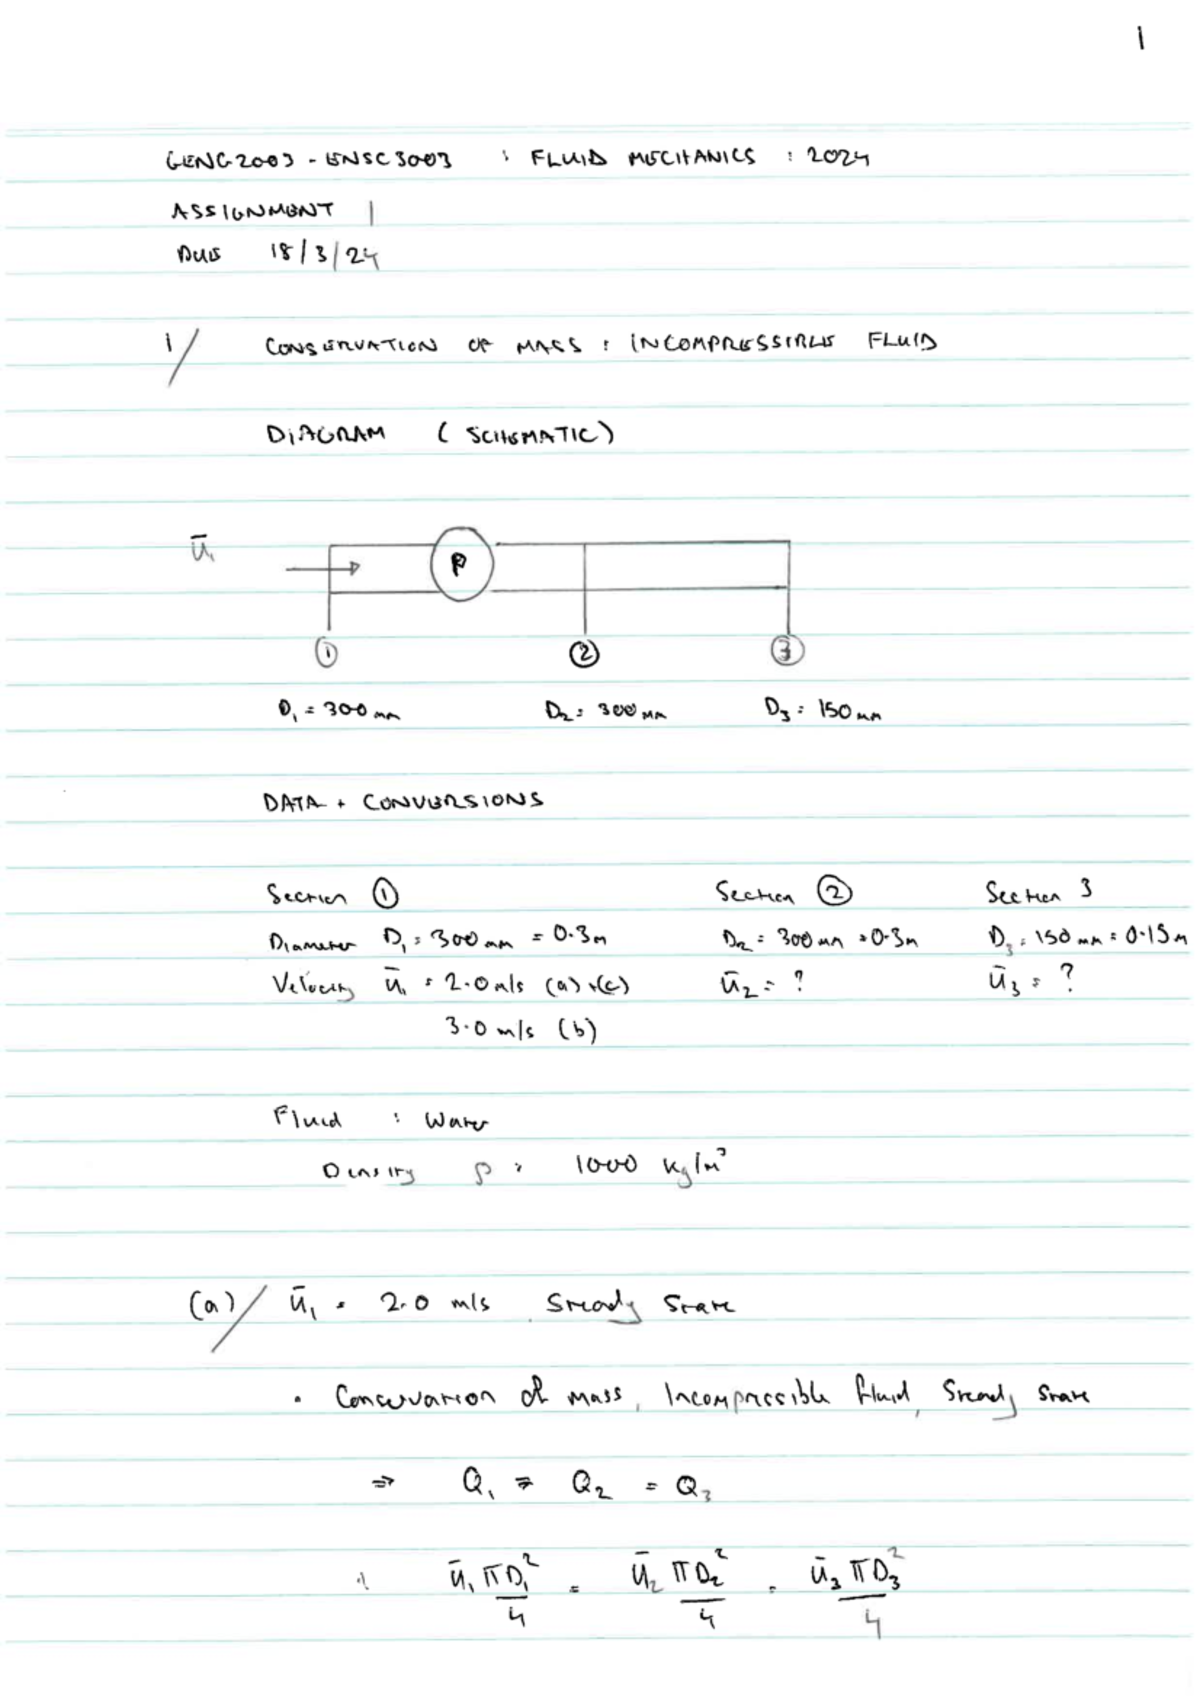 1
GENG2003 - ENSC3003 : FLUID MECHANICS : 2024
ASSIGNMENT 1
DUE 18/3/24
1/ CONSERVATION OF MASS : INCOMPRESSIBLE FLUID
DIAGRAM (SCHEMATIC)
ū₁ P
① ② ③
D₁ = 300mm D₂ = 300mm D₃ = 150mm
DATA + CONVERSIONS
Section ① Section ② Section 3
Diameter D₁ = 300mm = 0.3m D₂ = 300mm = 0.3m D₃ = 150mm = 0.15m
Velocity ū₁ = 2.0m/s (a)+(c) ū₂ = ? ū₃ = ?
3.0 m/s (b)
Fluid : Water
Density ρ = 1000 kg/m³
(a)/ ū₁ = 2.0 m/s Steady State
• Conservation of mass, Incompressible fluid, Steady State
⇒ Q₁ = Q₂ = Q₃
∴ ū₁πD₁²/4 = ū₂πD₂²/4 = ū₃πD₃²/4